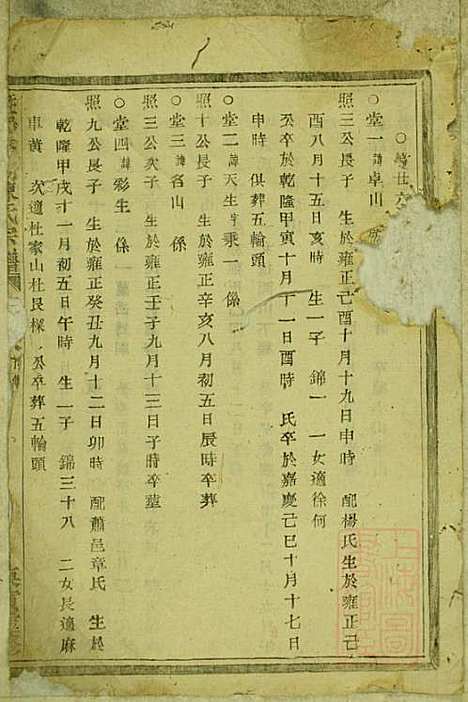 世六
○堂一諱卓山
照三公長子 生於雍正己酉十月十九日申時 配楊氏生於雍正己
酉八月十五日亥時 生一子 錦一 一女適徐何
公卒於乾隆甲寅十月十一日酉時 氏卒於嘉慶己巳十月十七日
申時 俱葬五輪頭
○堂二諱天生字秉一係
照十公長子 生於雍正辛亥八月初五日辰時卒葬
○堂三諱名山 係
照三公次子 生於雍正壬子九月十三日子時卒葬
○堂四諱彩生 係
照九公長子 生於雍正癸丑九月十二日卯時 配蕭邑章氏 生於
乾隆甲戌十一月初五日午時 生一子 錦三十八 二女長適麻
車黃 次適杜家山杜艮樑 公卒葬五輪頭
氏宗譜